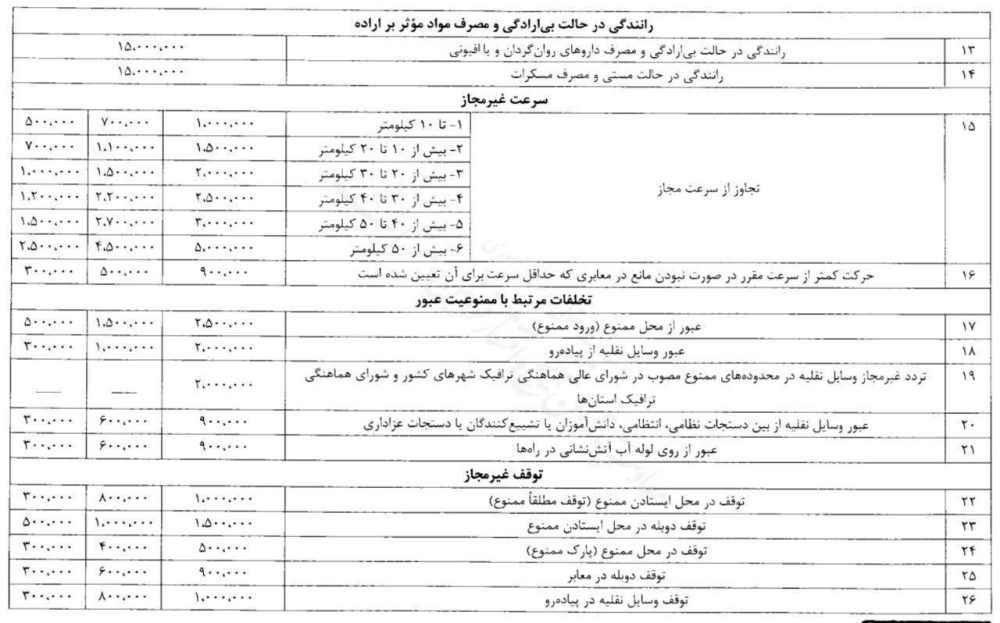 رانندگی در حالت بی‌ارادگی و مصرف مواد مؤثر بر اراده
۱۳ رانندگی در حالت بی‌ارادگی و مصرف داروهای روان‌گردان و یا افیونی ۱۵،۰۰۰،۰۰۰
۱۴ رانندگی در حالت مستی و مصرف مسکرات ۱۵،۰۰۰،۰۰۰
سرعت غیرمجاز
۱۵ ۱- تا ۱۰ کیلومتر ۱،۰۰۰،۰۰۰ ۷۰۰،۰۰۰ ۵۰۰،۰۰۰
۲- بیش از ۱۰ تا ۲۰ کیلومتر ۱،۵۰۰،۰۰۰ ۱،۱۰۰،۰۰۰ ۷۰۰،۰۰۰
۳- بیش از ۲۰ تا ۳۰ کیلومتر ۲،۰۰۰،۰۰۰ ۱،۵۰۰،۰۰۰ ۱،۰۰۰،۰۰۰
تجاوز از سرعت مجاز
۴- بیش از ۳۰ تا ۴۰ کیلومتر ۲،۵۰۰،۰۰۰ ۲،۲۰۰،۰۰۰ ۱،۲۰۰،۰۰۰
۵- بیش از ۴۰ تا ۵۰ کیلومتر ۳،۰۰۰،۰۰۰ ۲،۷۰۰،۰۰۰ ۱،۵۰۰،۰۰۰
۶- بیش از ۵۰ کیلومتر ۵،۰۰۰،۰۰۰ ۴،۵۰۰،۰۰۰ ۲،۵۰۰،۰۰۰
۱۶ حرکت کمتر از سرعت مقرر در صورت نبودن مانع در معابری که حداقل سرعت برای آن تعیین شده است ۹۰۰،۰۰۰ ۵۰۰،۰۰۰ ۳۰۰،۰۰۰
تخلفات مرتبط با ممنوعیت عبور
۱۷ عبور از محل ممنوع (ورود ممنوع) ۲،۵۰۰،۰۰۰ ۱،۵۰۰،۰۰۰ ۵۰۰،۰۰۰
۱۸ عبور وسایل نقلیه از پیاده‌رو ۲،۰۰۰،۰۰۰ ۱،۰۰۰،۰۰۰ ۳۰۰،۰۰۰
۱۹ تردد غیرمجاز وسایل نقلیه در محدوده‌های ممنوع مصوب در شورای عالی هماهنگی ترافیک شهرهای کشور و شورای هماهنگی ۲،۰۰۰،۰۰۰ — —
ترافیک استان‌ها
۲۰ عبور وسایل نقلیه از بین دستجات نظامی، انتظامی، دانش‌آموزان یا تشییع‌کنندگان یا دستجات عزاداری ۹۰۰،۰۰۰ ۶۰۰،۰۰۰ ۳۰۰،۰۰۰
۲۱ عبور از روی لوله آب آتش‌نشانی در راه‌ها ۹۰۰،۰۰۰ ۶۰۰،۰۰۰ ۳۰۰،۰۰۰
توقف غیرمجاز
۲۲ توقف در محل ایستادن ممنوع (توقف مطلقاً ممنوع) ۱،۰۰۰،۰۰۰ ۸۰۰،۰۰۰ ۳۰۰،۰۰۰
۲۳ توقف دوبله در محل ایستادن ممنوع ۱،۵۰۰،۰۰۰ ۱،۰۰۰،۰۰۰ ۵۰۰،۰۰۰
۲۴ توقف در محل ممنوع (پارک ممنوع) ۵۰۰،۰۰۰ ۴۰۰،۰۰۰ ۳۰۰،۰۰۰
۲۵ توقف دوبله در معابر ۹۰۰،۰۰۰ ۶۰۰،۰۰۰ ۳۰۰،۰۰۰
۲۶ توقف وسایل نقلیه در پیاده‌رو ۱،۰۰۰،۰۰۰ ۸۰۰،۰۰۰ ۳۰۰،۰۰۰